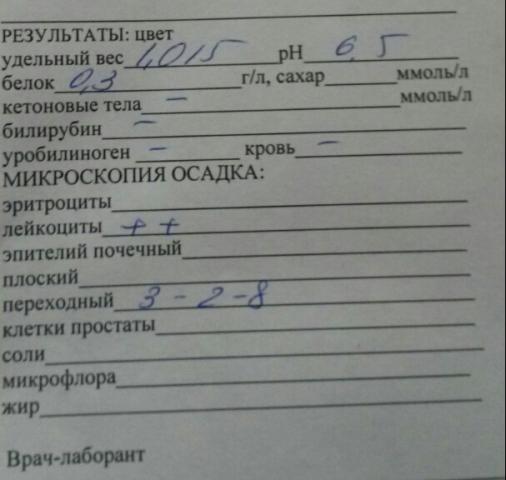 РЕЗУЛЬТАТЫ: цвет
удельный вес 1,015 pH 6,5
белок 0,3 г/л, сахар ммоль/л
кетоновые тела – ммоль/л
билирубин –
уробилиноген – кровь –
МИКРОСКОПИЯ ОСАДКА:
эритроциты
лейкоциты + +
эпителий почечный
плоский
переходный 3 - 2 - 8
клетки простаты
соли
микрофлора
жир
Врач-лаборант